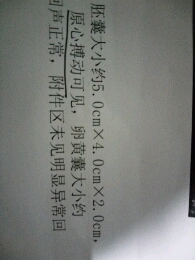 胚囊大小约5.0cm×4.0cm×2.0cm,
原心搏动可见, 卵黄囊大小约
回声正常, 附件区未见明显异常回